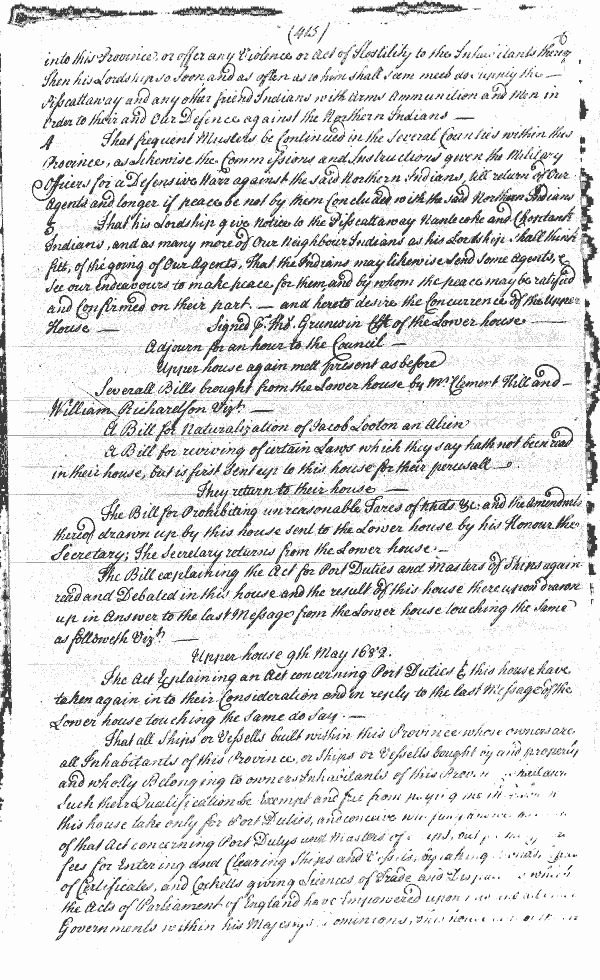 (415)
into this Province, or offer any Violence or Act of Hostility to the Inhabitants thereof
Then his Lordship so soon and as often as to him shall seem meet do supply the —
Pisscattaway and any other friend Indians with Arms Ammunition and Men in
order to their and Our Defence against the Northern Indians —
4 That frequent Musters be Continued in the Several Counties within this
Province, as Likewise the Commissions and Instructions given the Military
Officers for a Defensive Warr against the said Northern Indians, till return of Our
Agents and longer if peace be not by them Concluded with the said Northern Indians
5 That his Lordship give Notice to the Pisscattaway Nantecoke and Choptank
Indians, and as many more of Our Neighbour Indians as his Lordship shall think
fitt, of the going of Our Agents, That the Indians may likewise Send some Agents, &
See our endeavours to make peace for them, and by whom the peace may be ratified
and Confirmed on their part. — and hereto desire the Concurrence of the Upper
House — Signed Tho: Grunwin Clk of the Lower house
Adjourn for an hour to the Council —
Upper house again mett present as before
Severall Bills brought from the Lower house by Mr Clement Hill and —
William Richardson Vizt. —
A Bill for Naturalization of Jacob Looton an Alien
A Bill for reviving of certain Laws which they say hath not been read
in their house, but is first Sent up to this house for their perusall —
They return to their house —
The Bill for Prohibiting unreasonable Tares of hhds &c. and the Amendmts
thereof drawn up by this house sent to the Lower house by his Honour the
Secretary; The Secretary returns from the Lower house. —
The Bill explaining the Act for Port Duties and Masters of Ships again
read and Debated in this house and the result of this house thereupon drawn
up in Answer to the last Message from the Lower house touching the Same
as followeth Vizt. —
Upper house 9th May 1682.
The Act Explaining an Act concerning Port Duties & this house have
taken again into their Consideration and in reply to the last Message of the
Lower house touching the Same do Say. —
That all Ships or Vessells built within this Province whose owners are
all Inhabitants of this Province, or Ships or Vessells bought by and properly
and wholly Belonging to owners Inhabitants of this Province
Such their Qualification be Exempt and free from paying
this house take only for Port Duties, and conceive
of that Act concerning Port Dutys and Masters of
fees for Entering and Clearing Ships and Vessels, by taking
of Certificates, and Cocketts giving Licences of Trade and
the Acts of Parliament of England have Empowered
Governments within his Majestys Dominions, this house